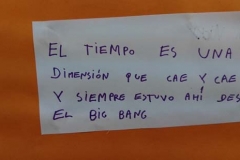 EL TIEMPO ES UNA
DIMENSIÓN QUE CAE Y CAE
Y SIEMPRE ESTUVO AHÍ DES
EL BIG BANG